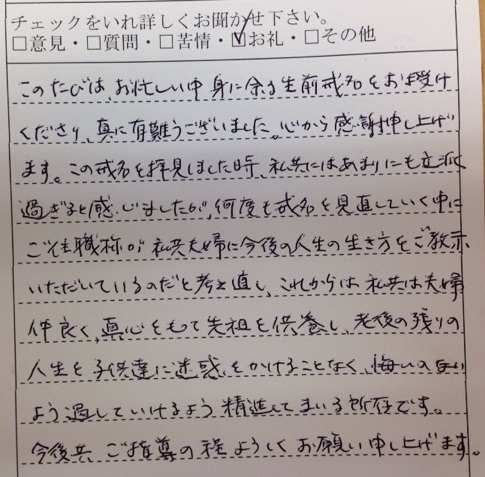 チェックをいれ詳しくお聞かせ下さい。
□意見・□質問・□苦情・☑お礼・□その他
このたびは、お忙しい中 身に余る生前戒名をお授け
くださり、真に有難うございました。心から感謝申し上げ
ます。この戒名を拝見しました時、私共にはあまりにも立派
過ぎると感じましたが、何度も戒名を見直していく中に
ご住職様が 私共夫婦に今後の人生の生き方をご教示
いただいているのだと考え直し、これからは 私共は夫婦
仲良く、真心をもって先祖を供養し、老後の残りの
人生を 子供達に迷惑をかけることなく、悔いのない
よう過していけるよう 精進してまいる所存です。
今後共、ご指導の程 よろしく お願い申し上げます。